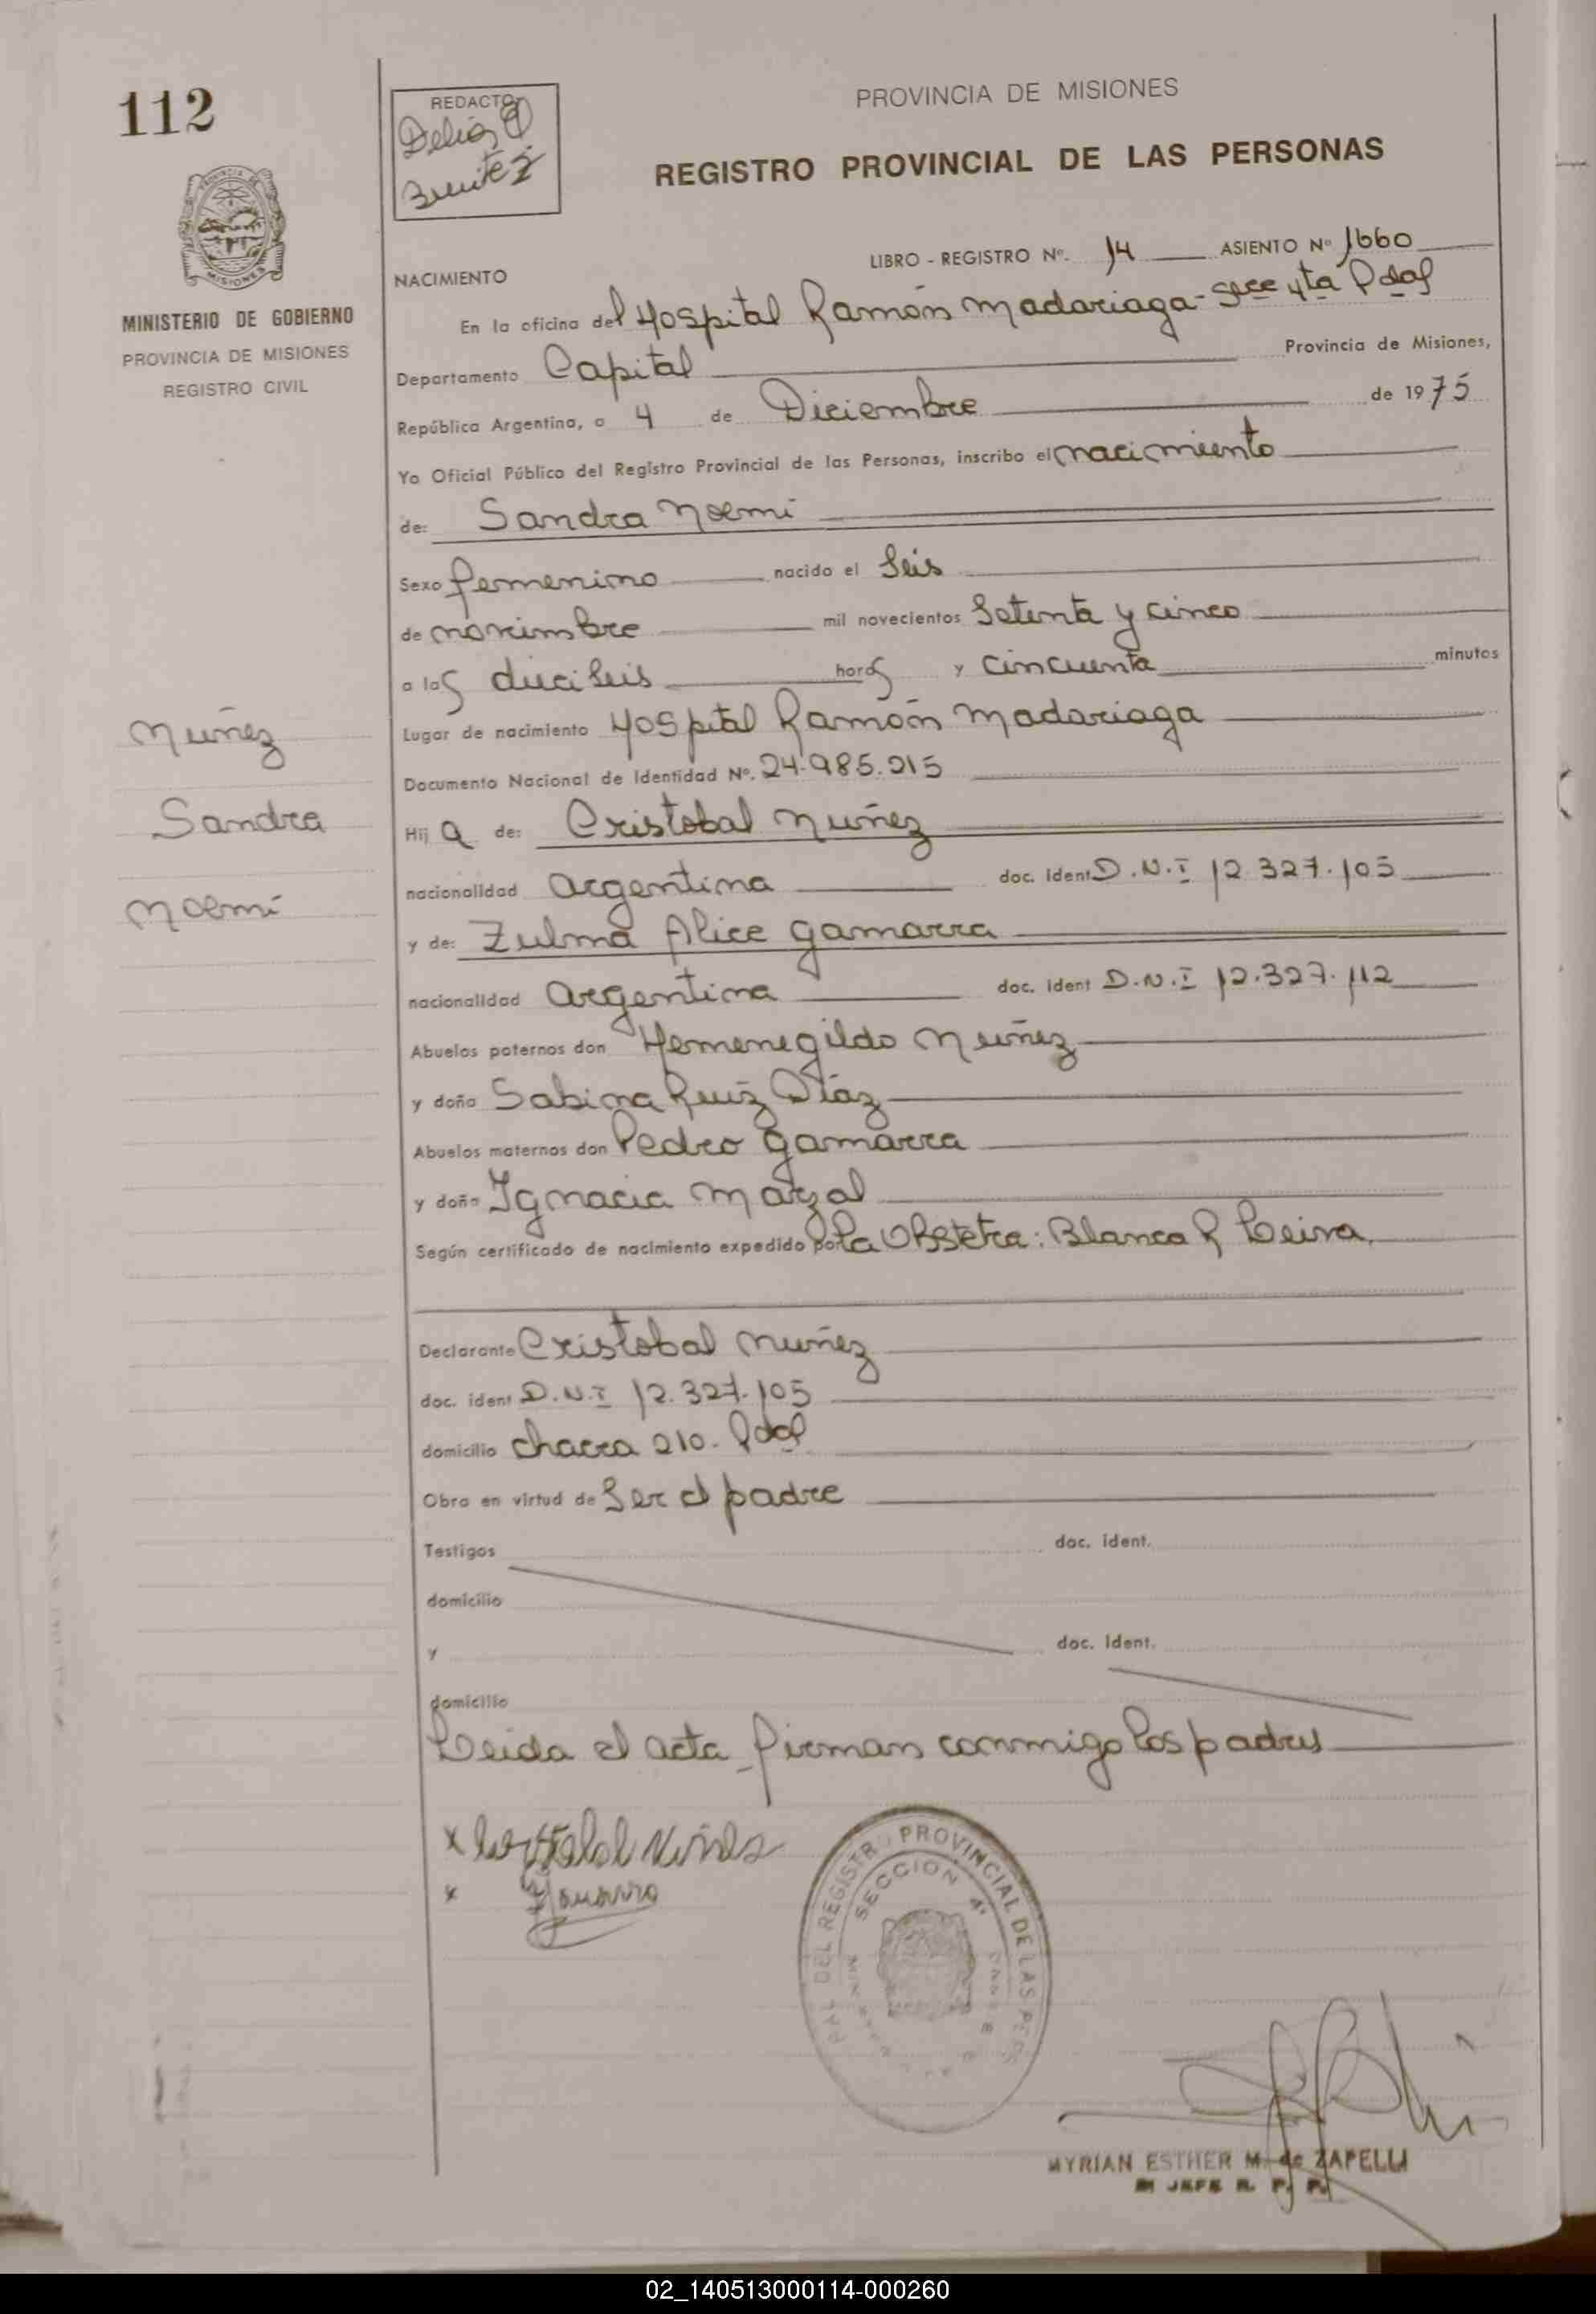 112
REDACTO
Delia
Benitez
PROVINCIA DE MISIONES
REGISTRO PROVINCIAL DE LAS PERSONAS
MINISTERIO DE GOBIERNO
PROVINCIA DE MISIONES
REGISTRO CIVIL
LIBRO - REGISTRO Nº. 14 ASIENTO Nº 1660
NACIMIENTO
En la oficina del Hospital Ramón Madariaga - Secc 4ta Pdas
Departamento Capital Provincia de Misiones,
República Argentina, a 4 de Diciembre de 1975
Yo Oficial Público del Registro Provincial de las Personas, inscribo el nacimiento
de: Sandra Noemi
Sexo femenino nacido el Seis
de noviembre mil novecientos Setenta y cinco
a las dieciseis horas y cincuenta minutos
Lugar de nacimiento Hospital Ramón Madariaga
Documento Nacional de Identidad Nº. 24.985.215
Hij a de: Cristobal Nuñez
nacionalidad argentina doc. ident D.N.I 12.327.105
y de: Zulma Alice Gamarra
nacionalidad argentina doc. ident D.N.I 12.327.112
Abuelos paternos don Hemenegildo Nuñez
y doña Sabina Ruiz Díaz
Abuelos maternos don Pedro Gamarra
y doña Ygnacia Marzal
Según certificado de nacimiento expedido por la Obstetra: Blanca R Leiva.
Declarante Cristobal Nuñez
doc. ident D.N.I 12.327.105
domicilio chacra 210. Pdas
Obra en virtud de Ser el padre
Testigos doc. ident.
domicilio
y doc. ident.
domicilio
Leida el acta firman conmigo los padres
Nuñez
Sandra
Noemi
x Cristobal Nuñez
x Gamarra
DEL REGISTRO PROVINCIAL DE LAS PERS
SECCION 4ª
MYRIAN ESTHER M. de ZAPELLI
JEFE R. P. P.
02_140513000114-000260